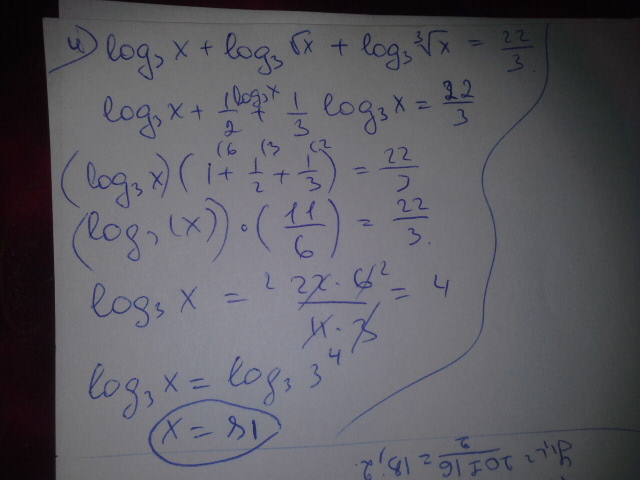 и) log₃ x + log₃ √x + log₃ ∛x = 22/3.
log₃ x + 1/2 log₃ x + 1/3 log₃ x = 22/3
(log₃ x) (1 (6 + 1/2 (3 + 1/3 (2) = 22/3
(log₃ (x)) · (11/6) = 22/3.
log₃ x = 2 22 · 6 2 / 11 · 3 = 4
log₃ x = log₃ 3⁴
x = 81